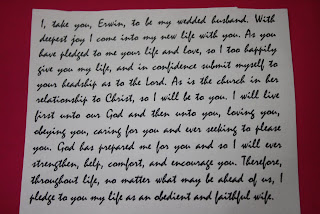 I, take you, Erwin, to be my wedded husband. With
deepest joy I come into my new life with you. As you
have pledged to me your life and love, so I too happily
give you my life, and in confidence submit myself to
your headship as to the Lord. As is the church in her
relationship to Christ, so I will be to you. I will live
first unto our God and then unto you, loving you,
obeying you, caring for you and ever seeking to please
you. God has prepared me for you and so I will ever
strengthen, help, comfort, and encourage you. Therefore,
throughout life, no matter what may be ahead of us, I
pledge to you my life as an obedient and faithful wife.